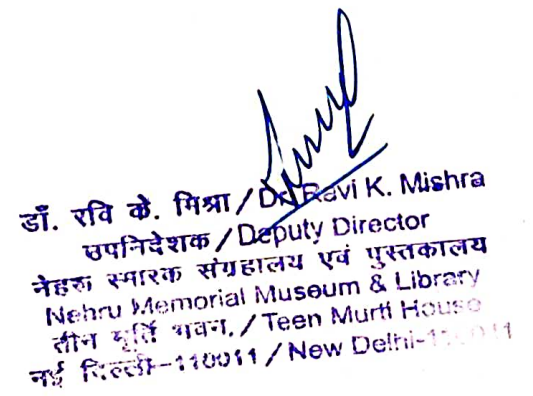 डॉ. रवि के. मिश्रा / Dr. Ravi K. Mishra
उपनिदेशक / Deputy Director
नेहरु स्मारक संग्रहालय एवं पुस्तकालय
Nehru Memorial Museum & Library
तीन मूर्ति भवन, / Teen Murti House
नई दिल्ली-110011 / New Delhi-110011